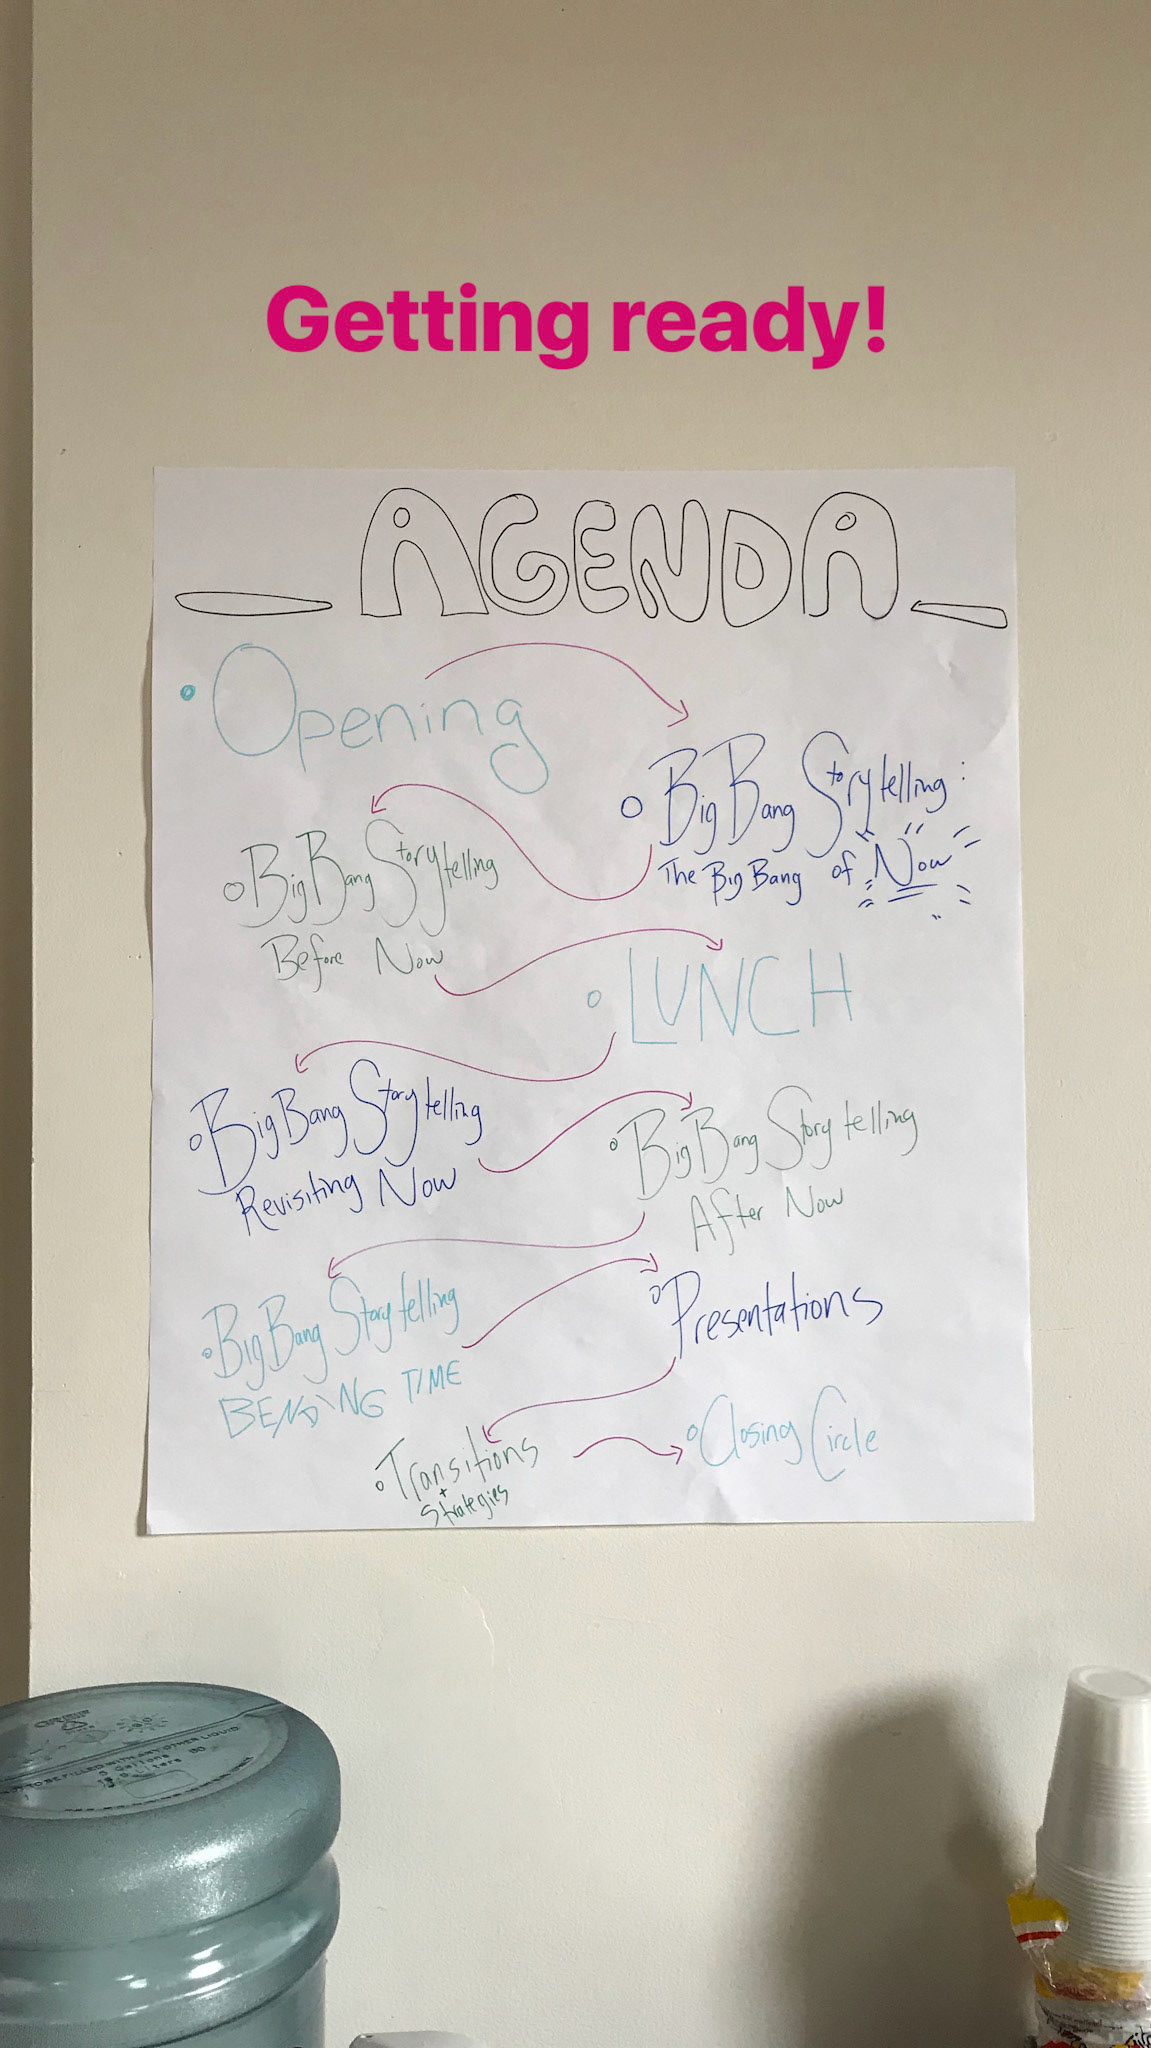 Getting ready!
AGENDA
Opening
Big Bang Storytelling:
The Big Bang of Now
Big Bang Storytelling
Before Now
LUNCH
Big Bang Storytelling
Revisiting Now
Big Bang Storytelling
After Now
Big Bang Storytelling
BENDING TIME
Presentations
Transitions
+
Strategies
Closing Circle
5 Gallons